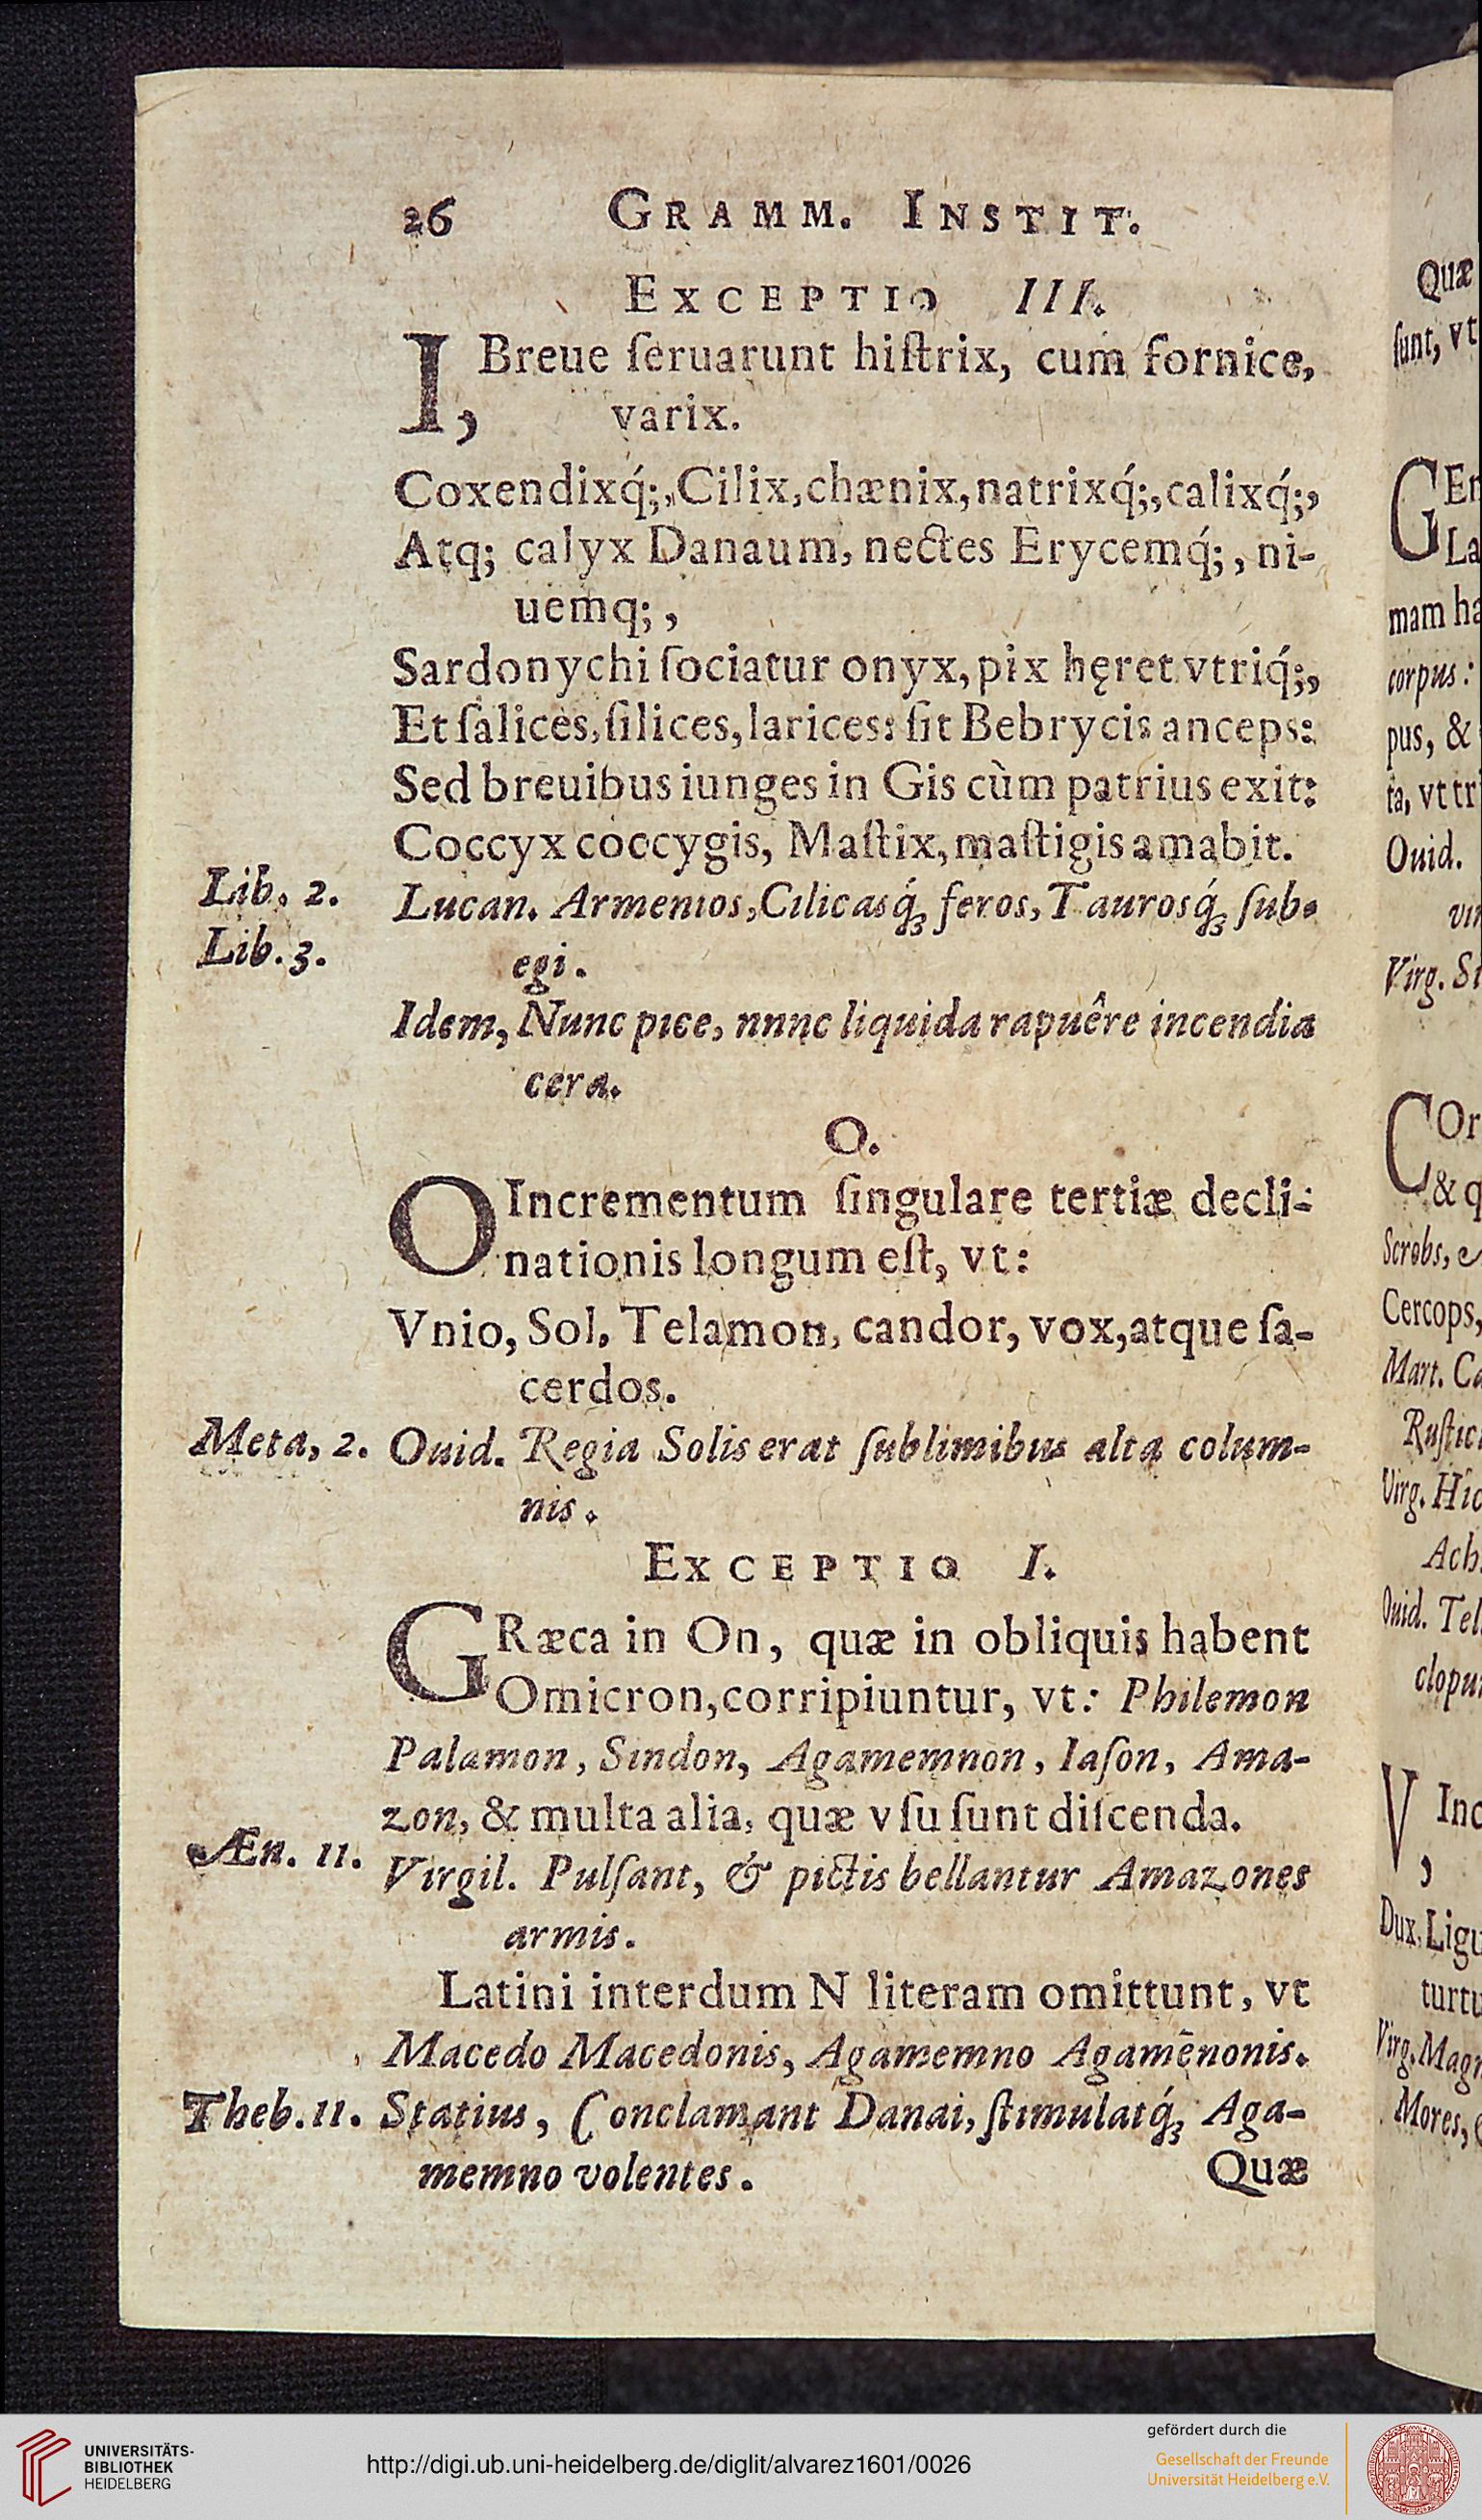 26 GRAMM. INSTIT.
EXCEPTIO III.
I, Breue ſeruarunt hiſtrix, cum fornice,
varix.
Coxendixq́;, Cilix, chænix, natrixq́;, calixq́;,
Atq; calyx Danaum, nectes Erycemq́;, ni-
uemq;,
Sardonychi ſociatur onyx, pix hęret vtriq́;,
Et ſalices, ſilices, larices: ſit Bebrycis anceps:
Sed breuibus iunges in Gis cùm patrius exit:
Coccyx coccygis, Maſtix, maſtigis amabit.
Lib. 2. Lucan. Armenios, Cilicasq́; feros, Taurosq́; ſub-
Lib. 3. egi.
Idem, Nunc pice, nnnc liquida rapuêre incendia
cera.
O.
O Incrementum ſingulare tertiæ decli-
nationis longum eſt, vt:
Vnio, Sol, Telamon, candor, vox, atque ſa-
cerdos.
Meta, 2. Ouid. Regia Solis erat ſublimibus alta colum-
nis.
EXCEPTIO I.
GRæca in On, quæ in obliquis habent
Omicron, corripiuntur, vt: Philemon
Palamon, Sindon, Agamemnon, Iaſon, Ama-
zon, & multa alia, quæ vſu ſunt diſcenda.
Æn. 11. Virgil. Pulſant, & pictis bellantur Amazones
armis.
Latini interdum N literam omittunt, vt
Macedo Macedonis, Agamemno Agamēnonis.
Theb. 11. Statius, Conclamant Danai, ſtimulatq́; Aga-
memno volentes. Quæ
Quæ
ſunt, vt
GEn
La
mam ha
corpus:
pus, &
ta, vt tr
Ouid.
Virg. Si
COr
& q
Scrobs, e
Cercops,
Mart. Ca
Ruſtic
Virg. Hic
Ach
Ouid. Tel
clopu
V, Inc
Dux, Ligu
turtu
Virg. Magn
Mores,
UNIVERSITÄTS-
BIBLIOTHEK
HEIDELBERG
http://digi.ub.uni-heidelberg.de/diglit/alvarez1601/0026
gefördert durch die
Gesellschaft der Freunde
Universität Heidelberg e.V.